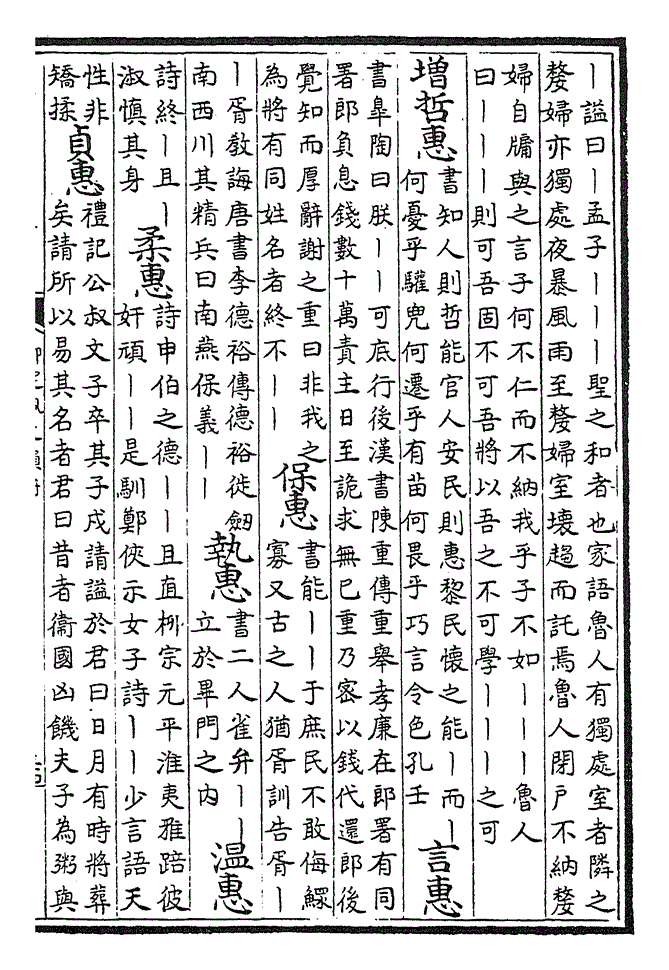 丨諡曰丨孟子丨丨丨聖之和者也家語魯人有獨處室者隣之
嫠婦亦獨處夜暴風雨至嫠婦室壞趨而託焉魯人閉户不納嫠
婦自牖與之言子何不仁而不納我乎子不如丨丨丨魯人
曰丨丨丨則可吾固不可吾將以吾之不可學丨丨丨之可
增哲惠
書知人則哲能官人安民則惠黎民懷之能丨而丨
何憂乎驩兜何遷乎有苗何畏乎巧言令色孔壬
言惠
書皐陶曰朕丨丨可底行後漢書陳重傳重舉孝廉在郎署有同
署郎負息錢數十萬責主日至詭求無已重乃密以錢代還郎後
覺知而厚辭謝之重曰非我之
為將有同姓名者終不丨丨
保惠
書能丨丨于庶民不敢侮鰥
寡又古之人猶胥訓告胥丨
丨胥教誨唐書李德裕傳德裕徙劔
南西川其精兵曰南燕保義丨丨
執惠
書二人雀弁丨丨
立於畢門之内
温惠
詩終丨且丨
淑慎其身
柔惠
詩申伯之德丨丨且直栁宗元平淮夷雅踣彼
奸頑丨丨是馴鄭俠示女子詩丨丨少言語天
性非
矯揉
貞惠
禮記公叔文子卒其子戍請諡於君曰日月有時將葬
矣請所以易其名者君曰昔者衞國凶饑夫子為粥與